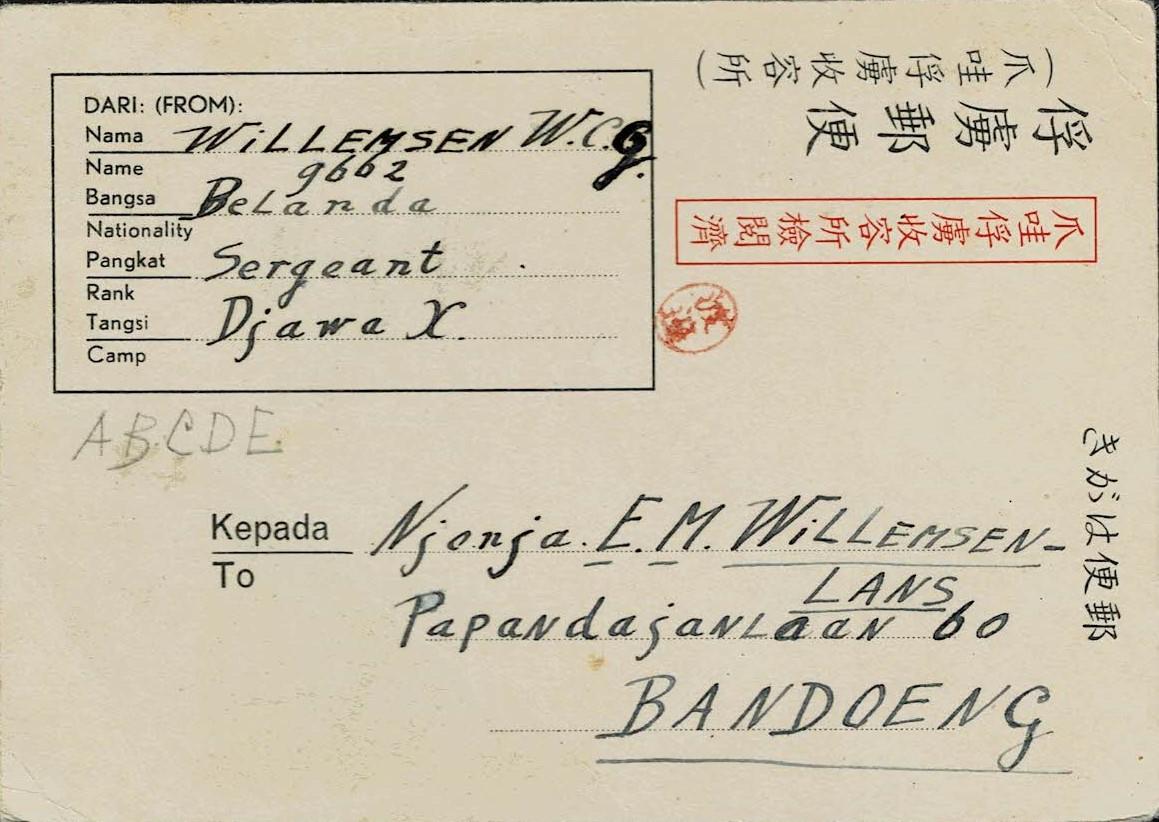 DARI: (FROM):
Nama WiLLEMSEN W.C.G.
Name 9662
Bangsa Belanda
Nationality
Pangkat Sergeant
Rank
Tangsi Djawa X.
Camp
(爪哇俘虜收容所)
俘虜郵便
爪哇俘虜收容所檢閱濟
郵便はがき
ABCDE
Kepada Njonja. E.M. WiLLEMSEN-
To LANS
Papandajanlaan 60
BANDOENG